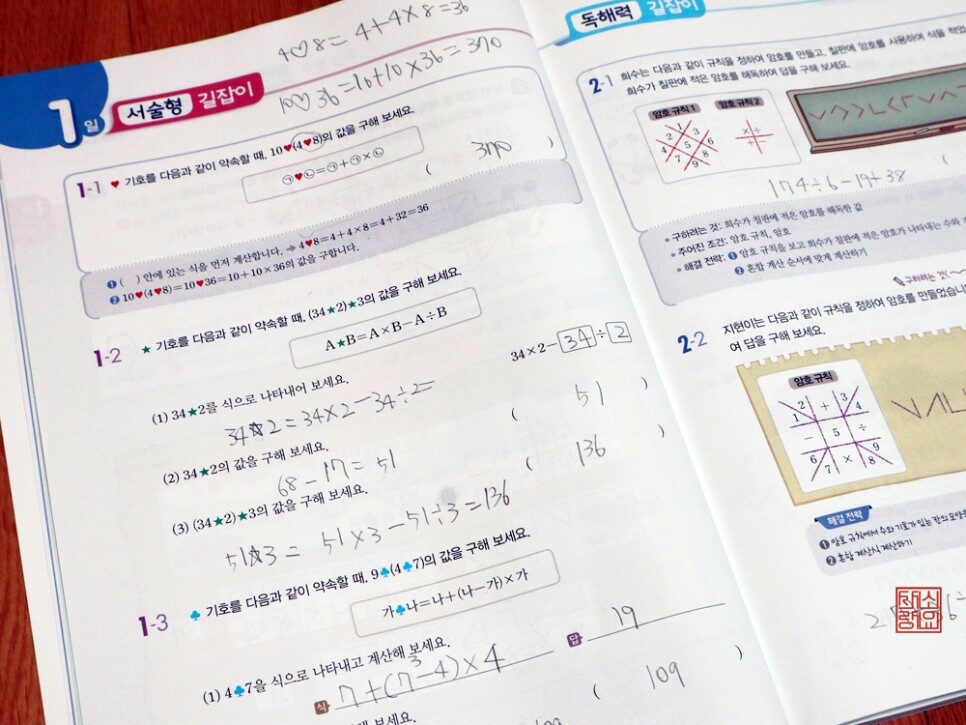 4♡8 = 4+4×8=36
10♡36 = 10+10×36=370
1일 서술형 길잡이
1-1 ♥ 기호를 다음과 같이 약속할 때, 10♥(4♥8)의 값을 구해 보세요.
㉠♥㉡=㉠+㉠×㉡
( 370 )
❶ ( ) 안에 있는 식을 먼저 계산합니다. ➔ 4♥8=4+4×8=4+32=36
❷ 10♥(4♥8)=10♥36=10+10×36의 값을 구합니다.
1-2 ★ 기호를 다음과 같이 약속할 때, (34★2)★3의 값을 구해 보세요.
A★B=A×B-A÷B
(1) 34★2를 식으로 나타내어 보세요.
34×2-34÷2
34☆2 = 34×2-34÷2=
(2) 34★2의 값을 구해 보세요.
( 51 )
68-17=51
(3) (34★2)★3의 값을 구해 보세요.
( 136 )
51☆3 = 51×3-51÷3=136
1-3 ♣ 기호를 다음과 같이 약속할 때, 9♣(4♣7)의 값을 구해 보세요.
가♣나=나+(나-가)×가
(1) 4♣7을 식으로 나타내고 계산해 보세요.
식 7+(7-4)×4
3
답 19
구해 보세요.
( 109 )
독해력 길잡이
2-1 희수는 다음과 같이 규칙을 정하여 암호를 만들고, 칠판에 암호를 사용하여 식을 적었
희수가 칠판에 적은 암호를 해독하여 답을 구해 보세요.
암호 규칙 1
암호 규칙 2
1
2 3
4 5 6
7 8
9
× ÷
+ -
174÷6-19+38
• 구하려는 것: 희수가 칠판에 적은 암호를 해독한 값
• 주어진 조건: 암호 규칙, 암호
• 해결 전략: ❶ 암호 규칙을 보고 희수가 칠판에 적은 암호가 나타내는 수와
❷ 혼합 계산 순서에 맞게 계산하기
구하려는 것(
2-2 지현이는 다음과 같이 규칙을 정하여 암호를 만들었습니
여 답을 구해 보세요.
암호 규칙
1 2 + 3 4
- 5 ÷
6 7 × 8 9
해결 전략
❶ 암호 규칙에서 수와 기호가 있는 칸의 모양을
❷ 혼합 계산식 계산하기